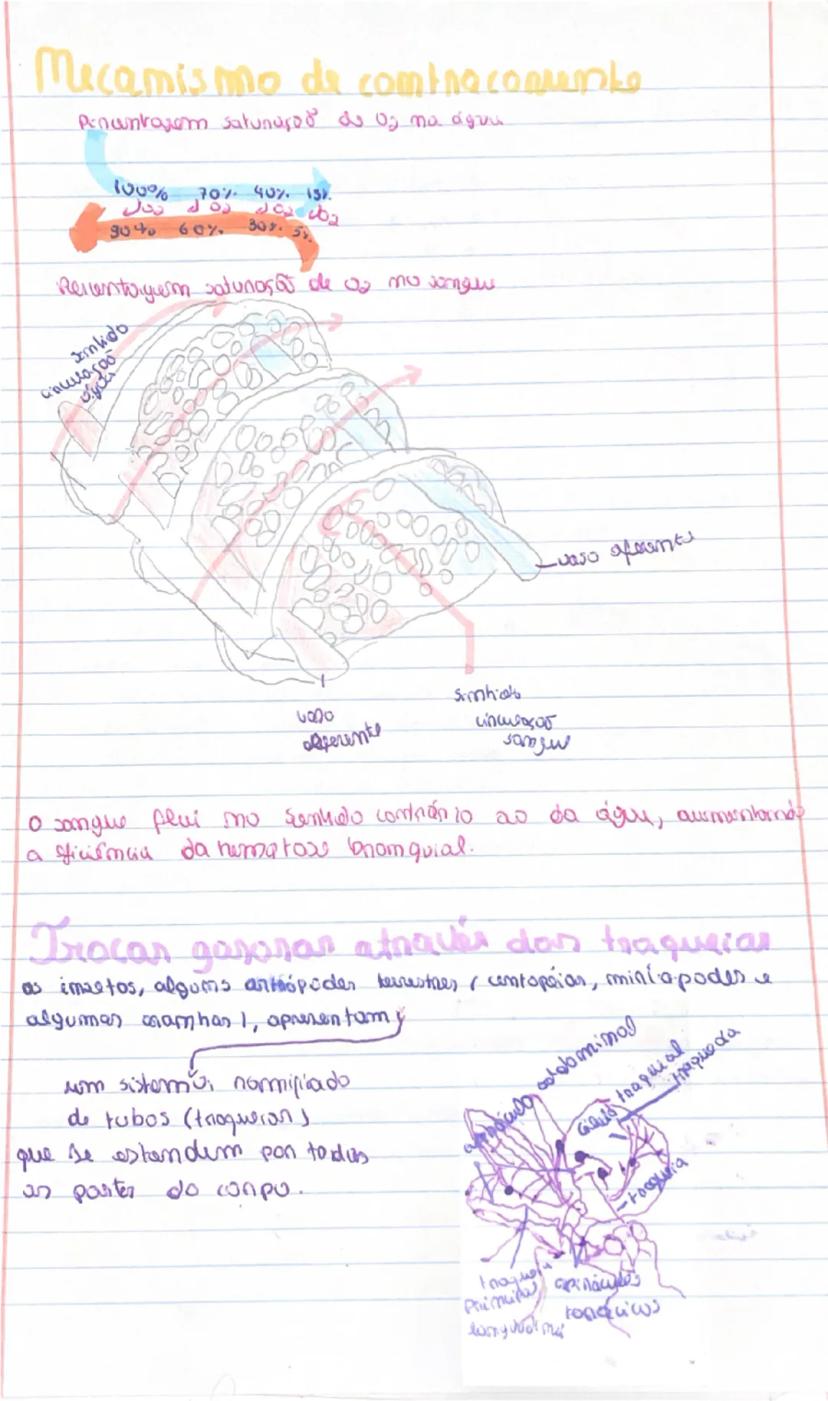 Mecanismo de contracorrente
Percentagem saturação de O2 na água
100% 70% 40% 15%
↓O2 ↓O2 ↓O2 ↓O2
90% 60% 30% 5%
Percentagem saturação de O2 no sangue
sentido
circulação
água
vaso aferente
vaso
eferente
sentido
circulação
sangue
O sangue flui no sentido contrário ao da água, aumentando
a eficiência da hematose branquial.
Trocas gasosas através das traqueias
os insetos, alguns artrópodes terrestres (centopéias, miriápodes e
algumas aranhas), apresentam
um sistema ramificado
de tubos (traqueias)
que se estendem por todas
as partes do corpo.
espiráculo abdominal
traqueal
traqueia
traqueia
primitiva
longitudinal
espiráculos
torácicos